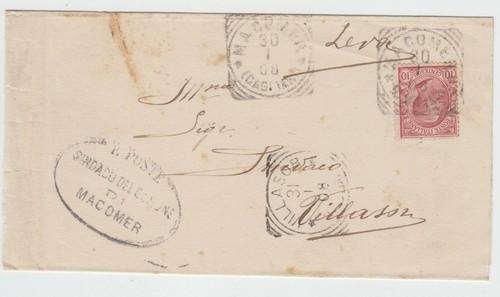 MACOMER
30
1
08
(CAGLIARI)
Leva
MACOMER
30
10
10
Sigr.
Sindaco
VILLASOR
31
1
08
Villasor
R. POSTE
SINDACO DEL COMUNE
DI
MACOMER